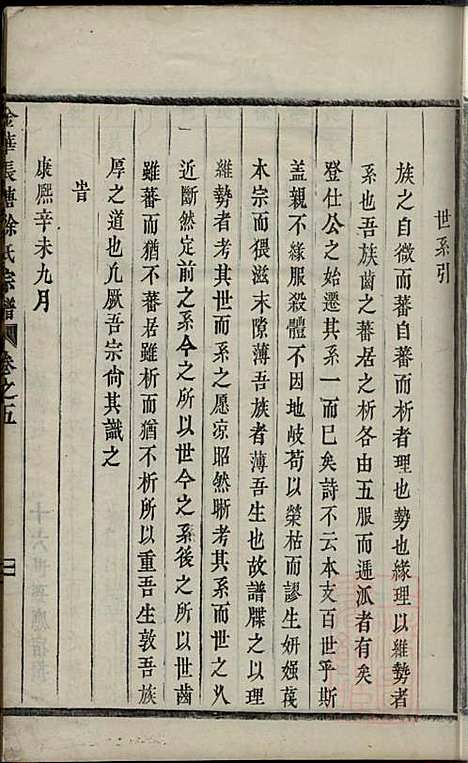 世系引
族之自微而蕃自合而析者理也勢也緣理以維勢者
系也吾族齒之蕃居之析各由五服而遞泒者有矣
登仕公之始遷其系一而已矣詩不云本支百世乎斯
蓋親不緣服殺體不因地岐苟以榮枯而謬生妍
本宗而猥滋末隙薄吾族者薄吾生也故譜牒之以理
維勢者考其世而系之愿凉昭然晰考其系而世之久
近斷然定前之系今之所以世今之系後之所以世齒
雖蕃而猶不蕃居雖析而猶不析所以重吾生敦吾族
厚之道也凢厥吾宗尙其識之
旹
康熈辛未九月
金華長塘徐氏宗譜 卷之五